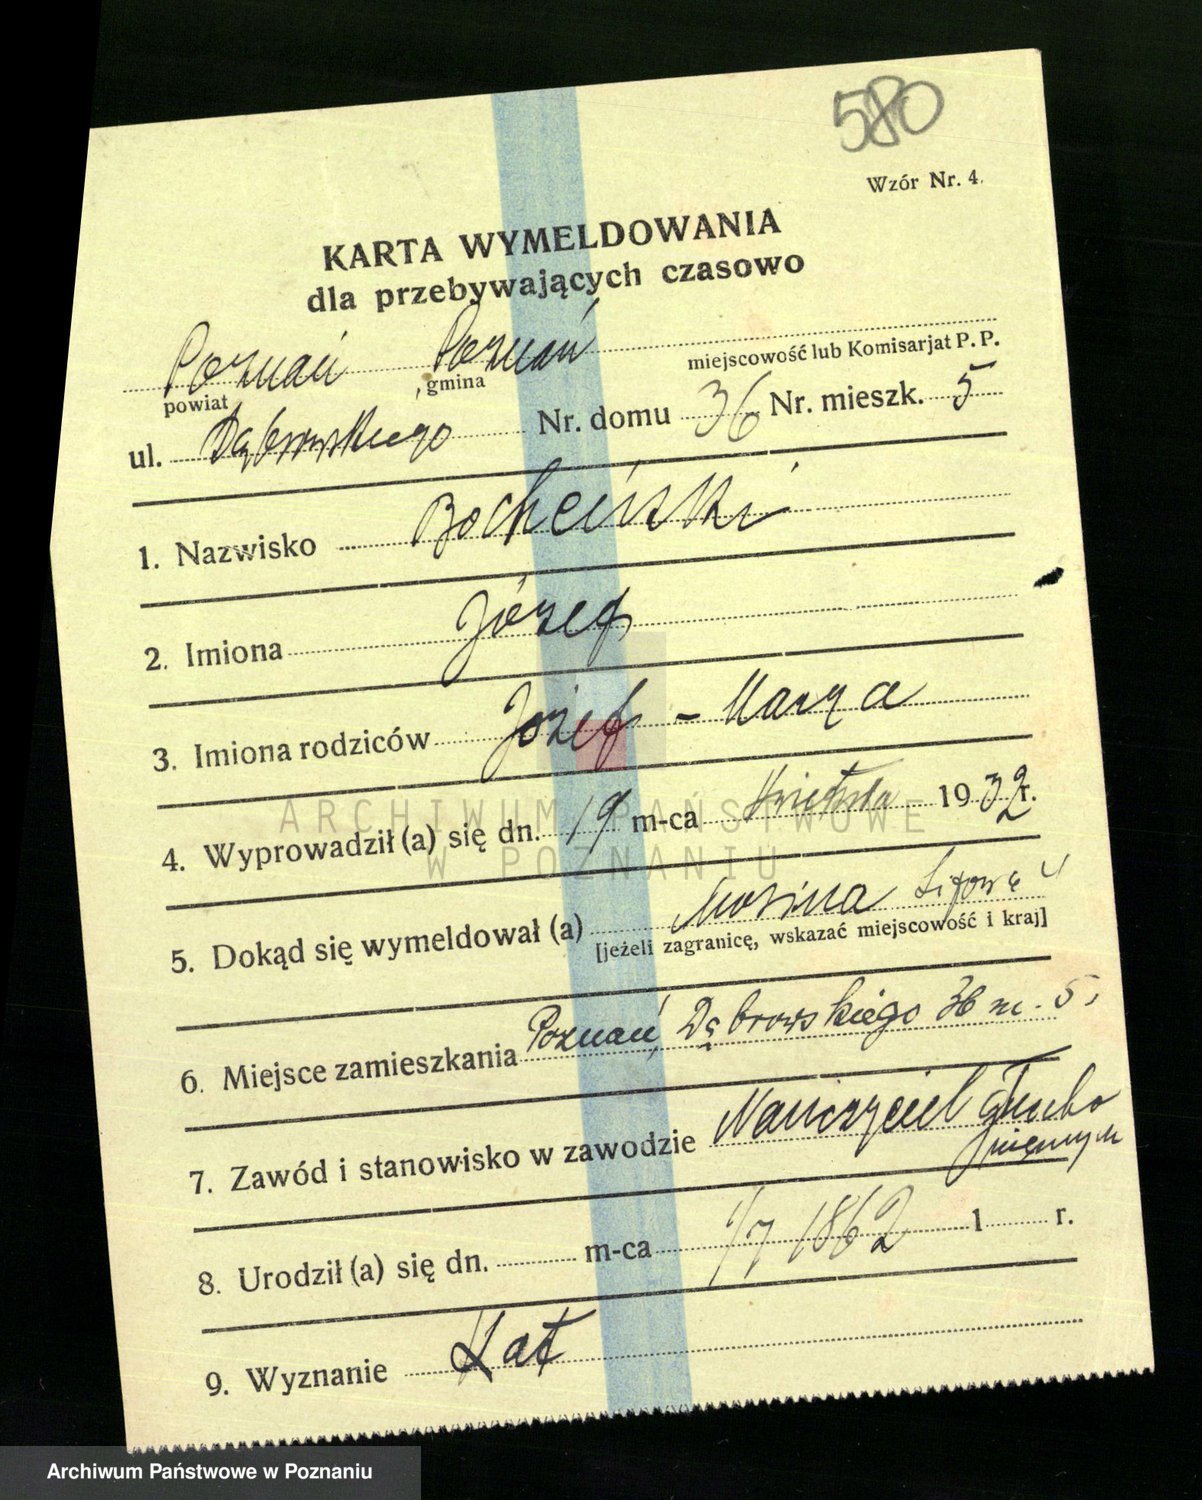 580
Wzór Nr. 4.
KARTA WYMELDOWANIA
dla przebywających czasowo
Poznań Poznań
powiat , gmina miejscowość lub Komisarjat P. P.
ul. Dąbrowskiego Nr. domu 36 Nr. mieszk. 5
1. Nazwisko Bocheński
2. Imiona Józef
3. Imiona rodziców Józef - Marya
4. Wyprowadził (a) się dn. 19 m-ca Kwietnia 1932 r.
5. Dokąd się wymeldował (a) Mosina
[jeżeli zagranicę, wskazać miejscowość i kraj]
6. Miejsce zamieszkania Poznań, Dąbrowskiego 36 m. 5,
7. Zawód i stanowisko w zawodzie Nauczyciel głucho
niemych
8. Urodził (a) się dn. m-ca 1/7 1862 1 r.
9. Wyznanie Kat
ARCHIWUM PAŃSTWOWE
W POZNANIU
Archiwum Państwowe w Poznaniu